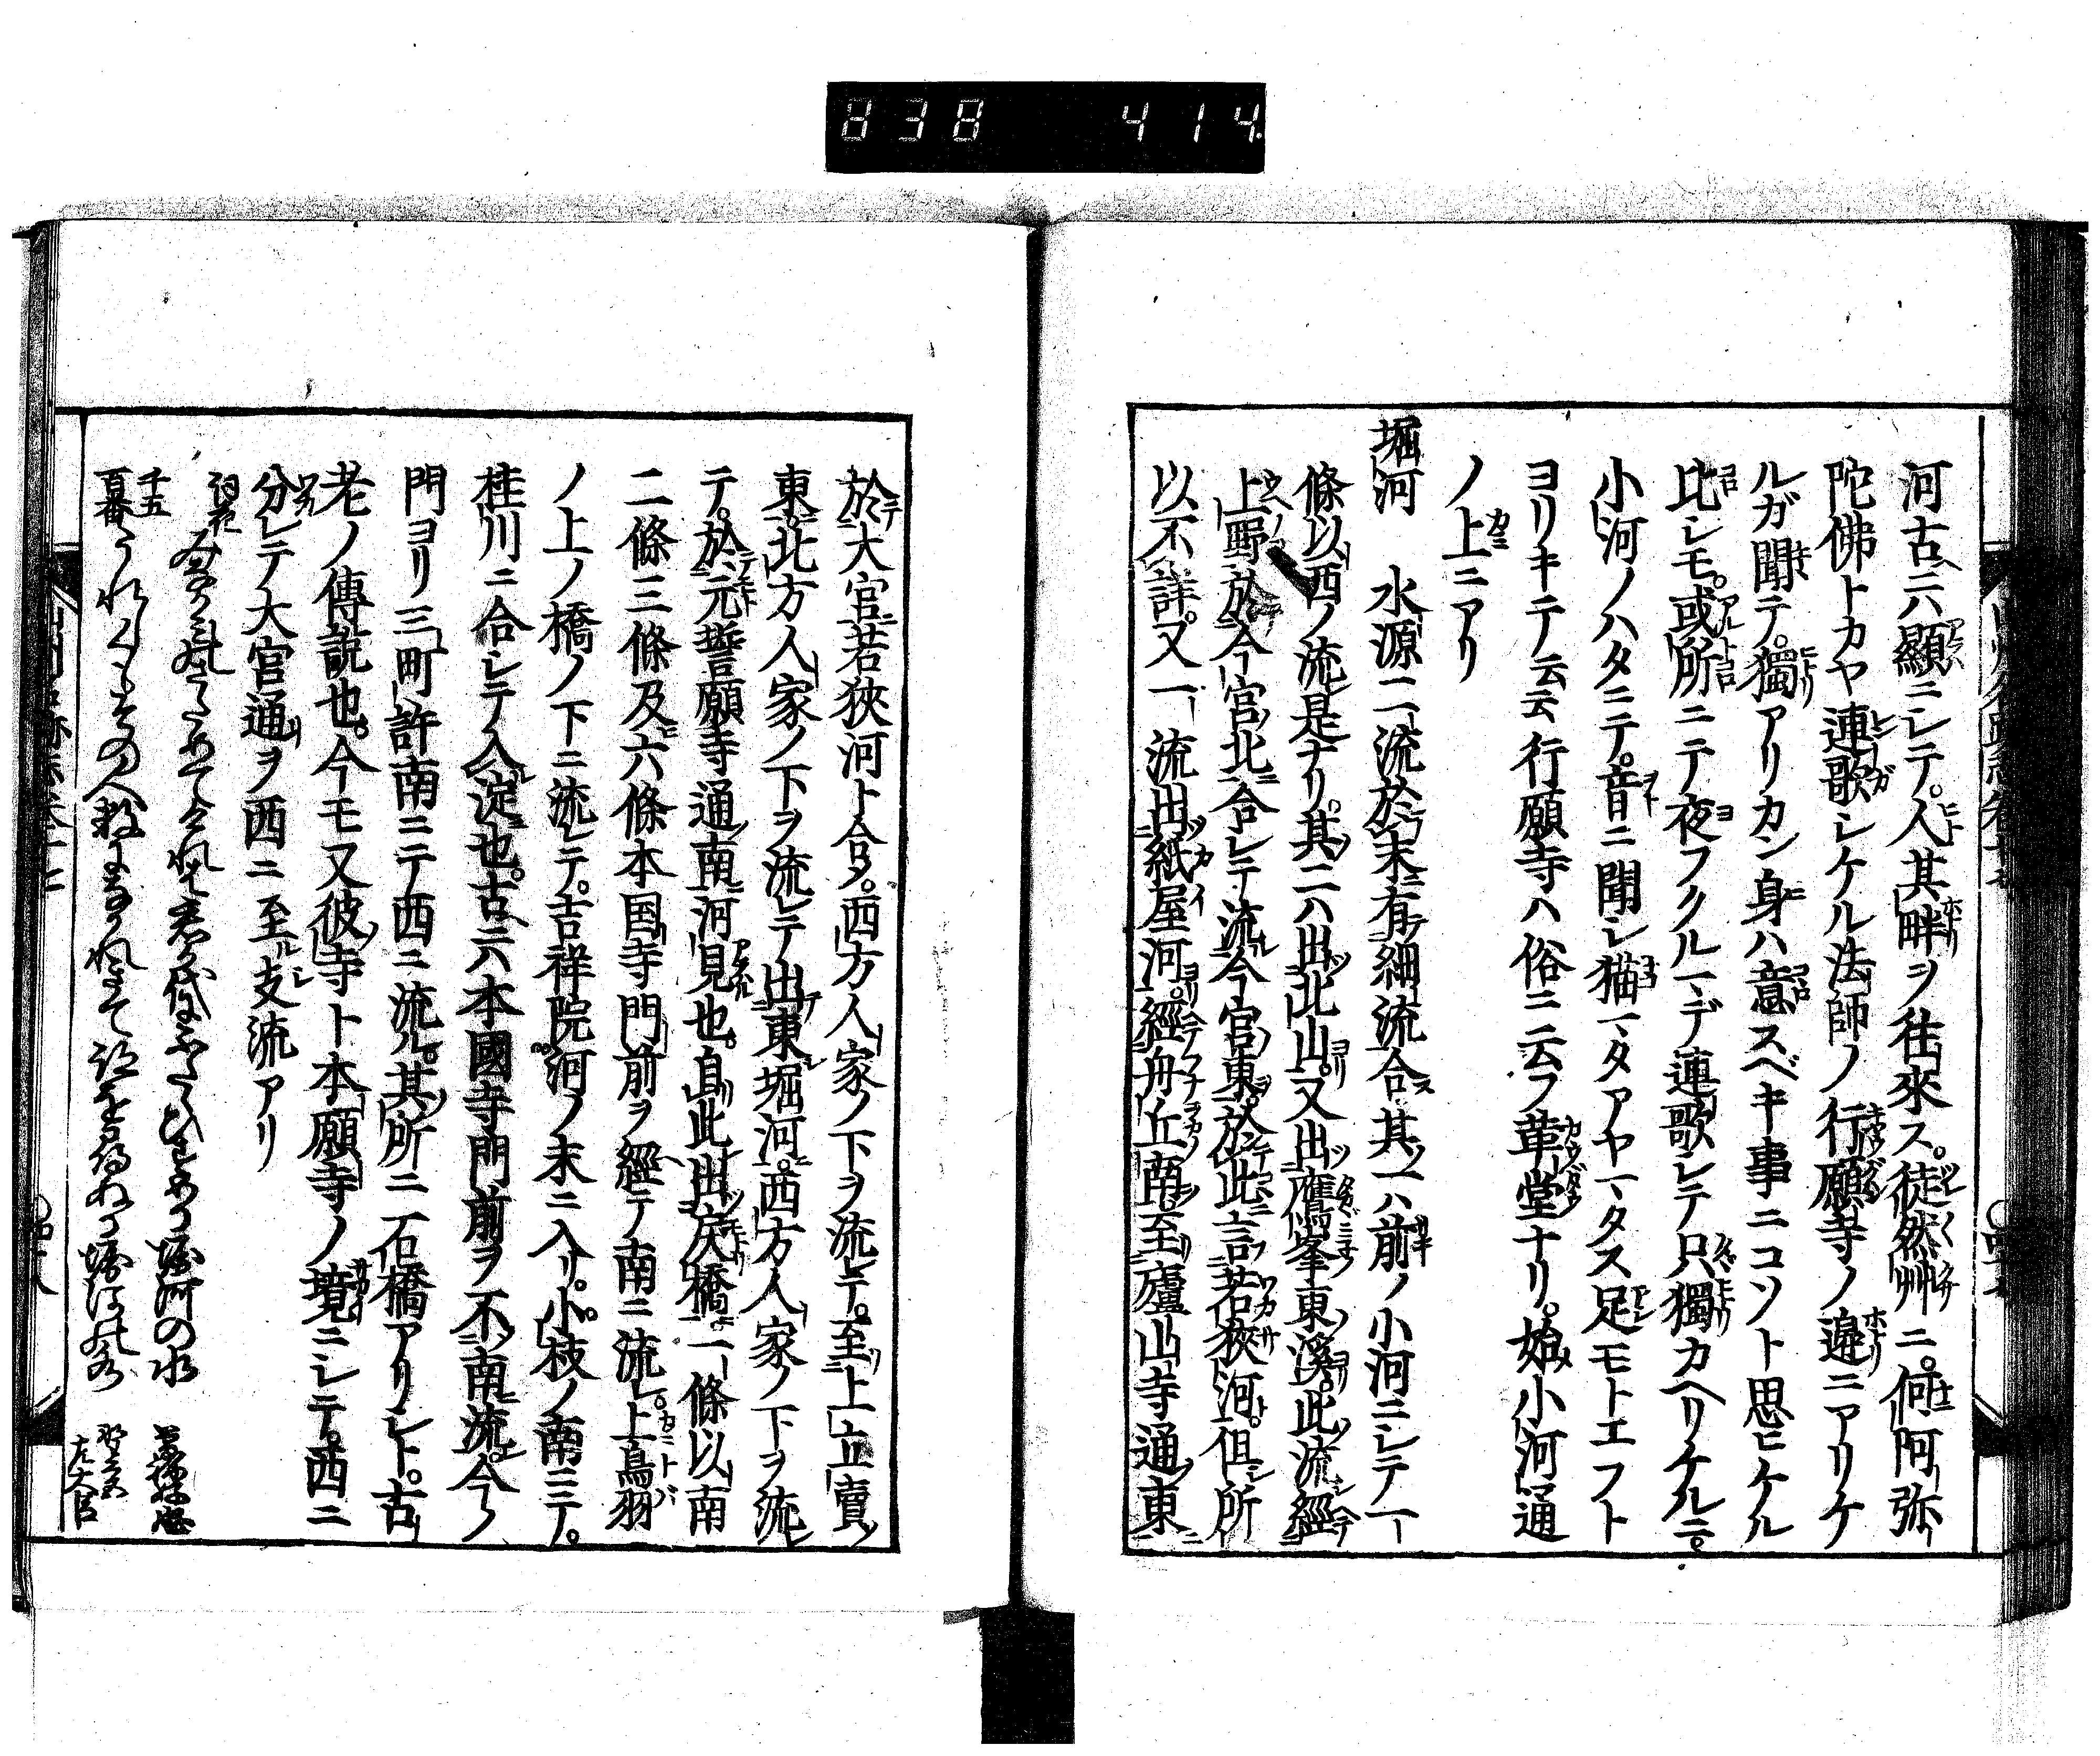 838 414
河古ハ顯ニシテ。人其畔ヲ往來ス。徒然艸ニ。何阿弥
陀佛トカヤ連歌シケル法師ノ行願寺ノ邉ニアリケ
ルガ聞テ。獨アリカン身ハ意スベキ事ニコソト思ヒケル
比シモ。或所ニテ夜フクルマデ連歌シテ只獨カヘリケルニ。
小河ノハタニテ。音ニ聞シ猫マタアヤマタス足モトエフト
ヨリキテ云云行願寺ハ俗ニ云フ革堂ナリ。始小河通
ノ上ニアリ
堀河 水源二流於末有細流合其一ハ前ノ小河ニシテ一
條以西ノ流是ナリ。其二ハ出北山。又出鷹峯東溪。此流經
上野於今宮北合シテ流今宮東。於此言若狹河。但所
以不詳。又一流出紙屋河。經舟丘南。至廬山寺通東
於大宮若狹河ト合ス。西方人家ノ下ヲ流シテ。至上立賣ノ
東。北方人家ノ下ヲ流レテ出東堀河。西方人家ノ下ヲ流レ
テ。於元誓願寺通南河見也。自此出戻橋。一條以南
二條三條及六條本国寺門前ヲ經テ南ニ流レ。上鳥羽
ノ上ノ橋ノ下ニ流レテ。吉祥院河ノ末ニ入リ。小枝ノ南ニテ。
桂川ニ合シテ入淀也。古ニハ本國寺門前ヲ不南流。今ノ
門ヨリ三町許南ニテ西ニ流ル。其所ニ石橋アリシト。古
老ノ傳説也。今モ又彼寺ト本願寺ノ境ニシテ。西ニ
分レテ大宮通ヲ西ニ至ル支流アリ
詞花
堀河の水
千五
百番
左大臣